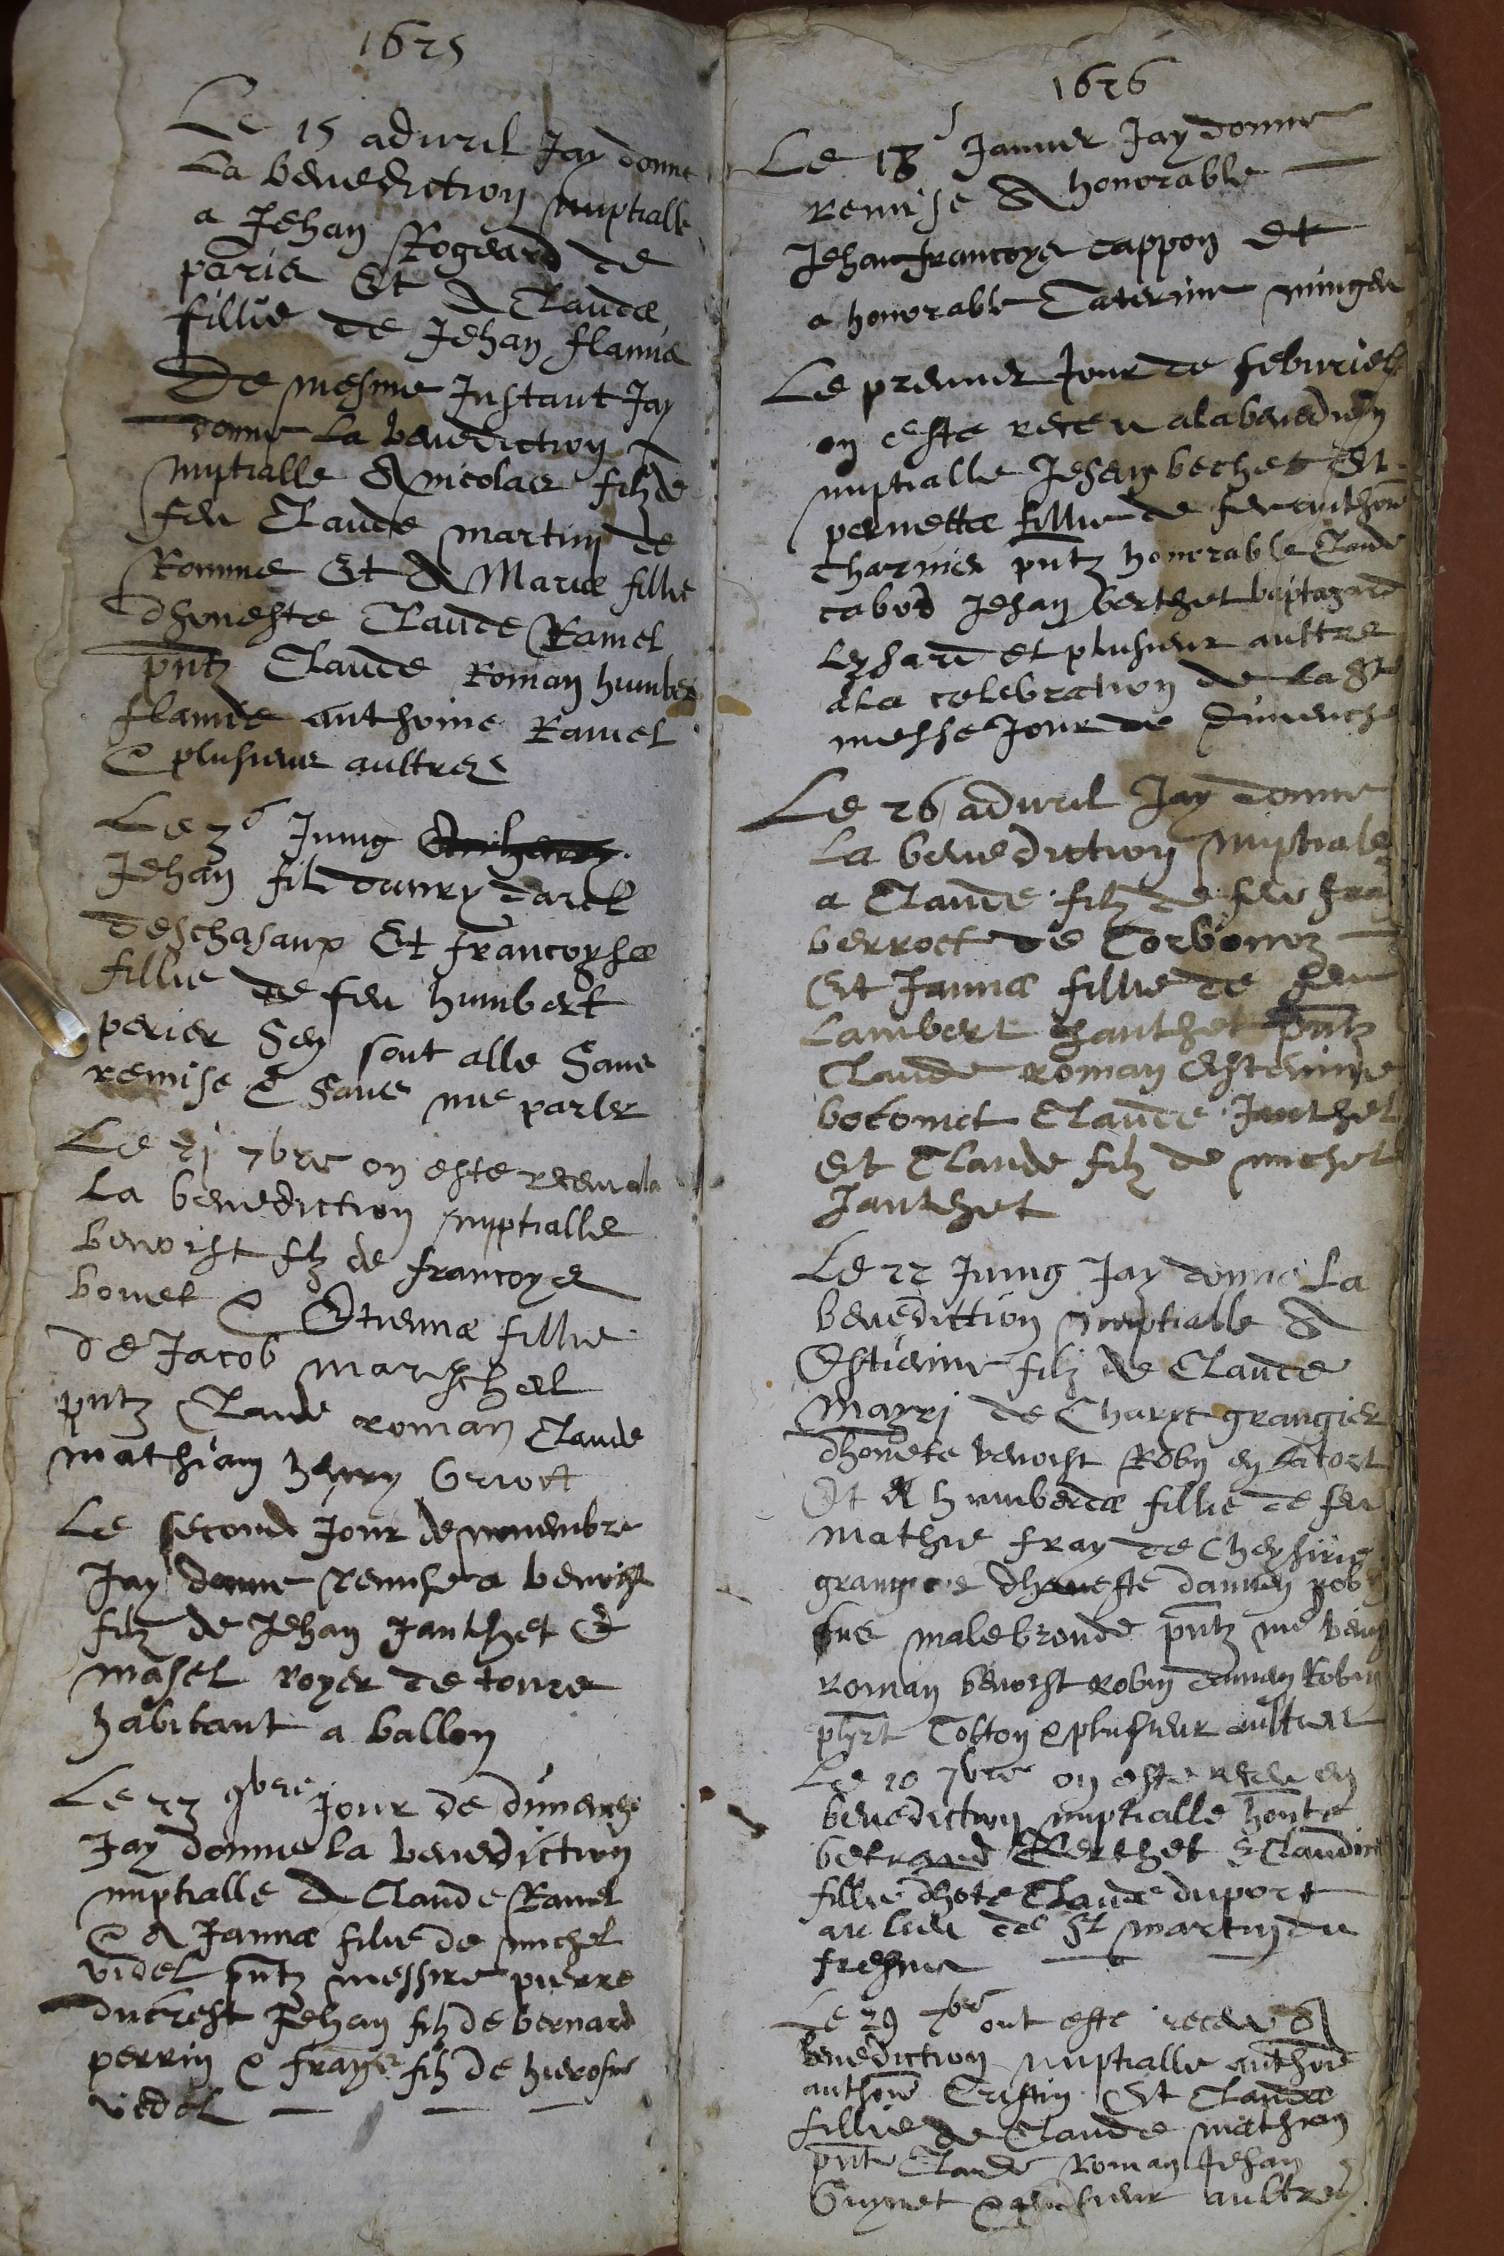 1625
Le 15 advril Jay donne
La benediction nuptialle
a Jehan Rogeard de
paris Et A Clauda
fillie de Jehan flama
De mesme Instant Jay
donne La benediction
nuptialle A nicolas filz de
feu Claude martin de
Romme Et A Maria fillie
dhoneste Claude Ramel
pntz Claude Roman humber
flamde anthoine Ramel
& plusieurs aultres
Le 3e Juing
Jehan filz danry darel
deschasaux Et francoysa
fillie de feu humbert
perier Sen sont alle Sans
remise & Sans me parler
Le 21 7bre on este receu ala
La benediction nuptialle
benoist filz de francoys
bonet & Etienna fillie
de Jacob mareschel
pntz Claude roman Claude
mathian henry Griott
Le second Jour de novembre
Jay donne remise a benoist
filz de Jehan Janthet &
masel royer de tours
habitant a ballon
Le 23 9bre jour de dimenche
Jay donne la benediction
nuptialle A Claude Ramel
& A Janna filie de michel
videl pntz messire pierre
ducrest Jehan filz de bernard
perrin & franç filz de hierosme
videl
1626
Le 18 Janvier Jay donne
remise A honorable
Jehan francoys cappon Et
a honorable Caterine minger
Le premier Jour de febvrier
on este receu a la benediction
nuptialle Jehan bechet Et
pernetta fillie de feu anthoine
charvier pntz honorable Claude
cabod Jehan berthet baptazard
Lysard et plusieur aultre
a la celebration de La Ste
messe Jour de Dimenche
Le 26 advril Jay donne
La benediction nuptiale
a Claude filz de feu fran
berroct de Corbonoz
Et Janna fillie de feu
Lambert Janthet pntz
Claude roman Estienne
botomet Claude Janthet
Et Claude filz de michel
Janthet
Le 22 Juing Jay donne La
benediction nuptialle A
Estienne filz de Claude
Mayri de Charix grangier
dhonete benoist Roby en la cort
Et A humberda fillie de feu
mathie fray de Cheysirie
grangere dhoneste damien rob
sus malebronde pntz me benoist
roman benoist robin damien Robin
Colton & plusieur aultres
Le 20 7bre on este receu en
benediction nuptialle honte
betrand Berthet & Claudine
fillie dhote Claude duport
au lieu de St martin du
fresne
Le 29 7bre ont este receu A
benediction nuptialle anthoine
anthoine Cristin Et Clauda
fillie de Claude mathian
pnt Claude Roman Jehan
Guynet & plusieur aultres